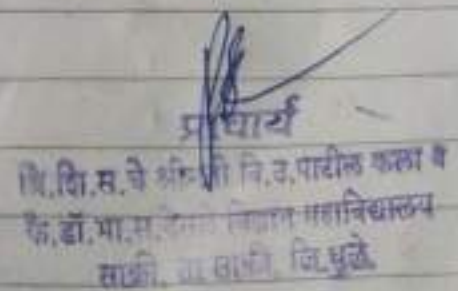 प्राचार्य
वि.वि.स.चे श्रीमती वि.उ.पाटील कला व
कै.डॉ.भा.स.देसले विज्ञान महाविद्यालय
साक्री, ता.साक्री, जि.धुळे.